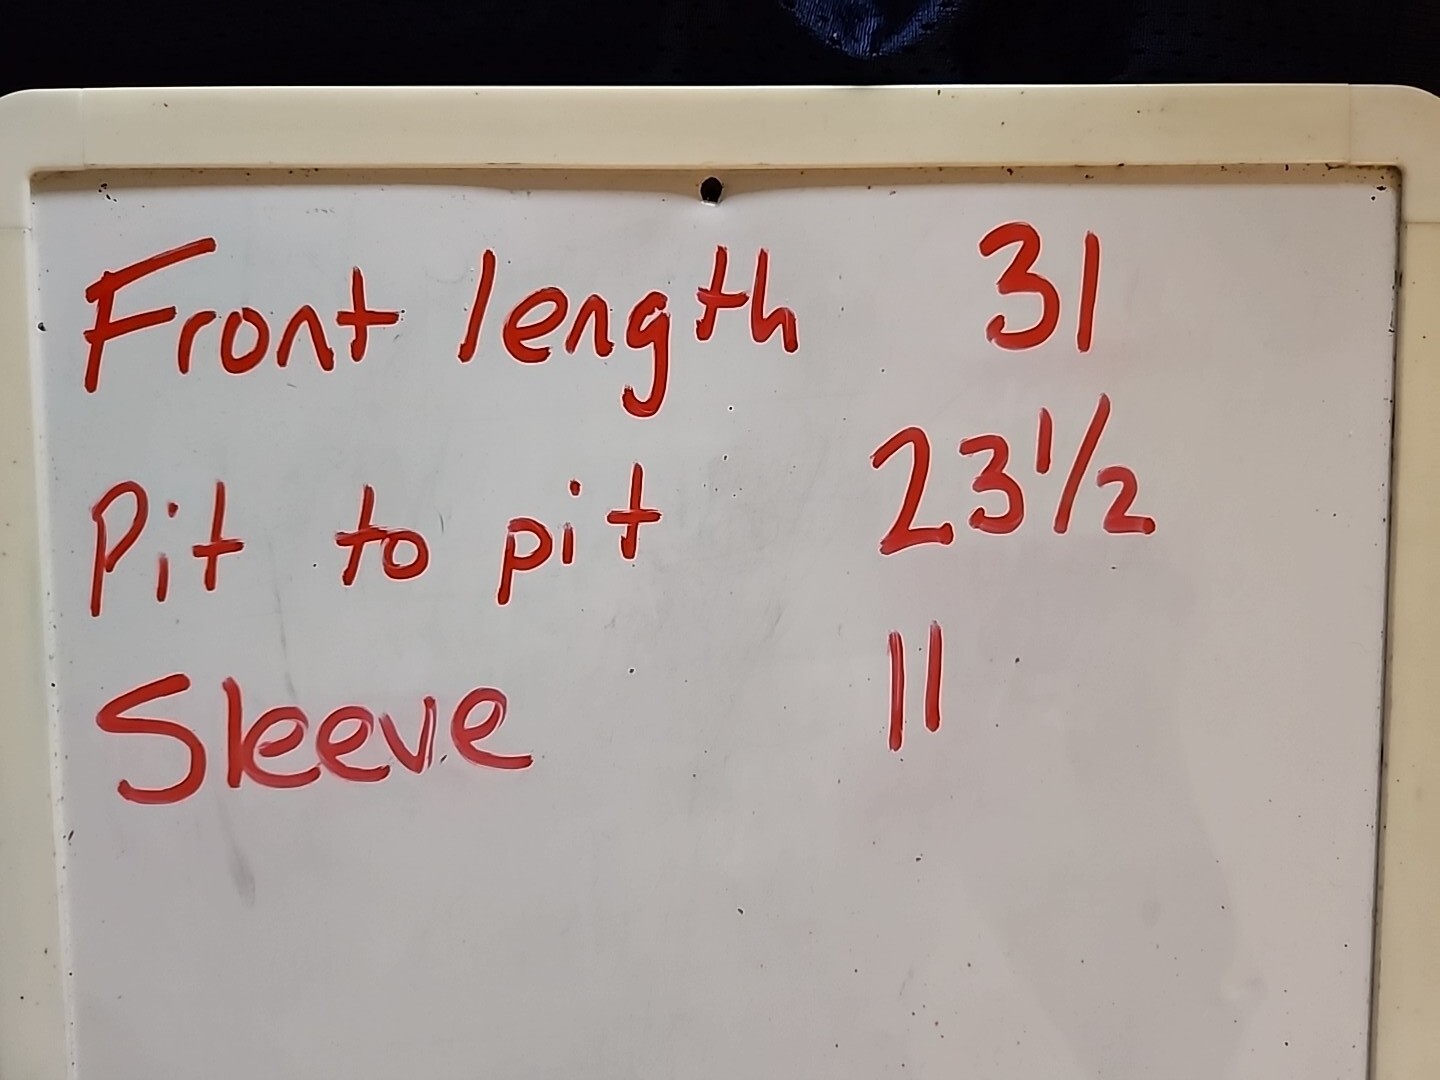 Front length 31
Pit to pit 23 1/2
Sleeve 11